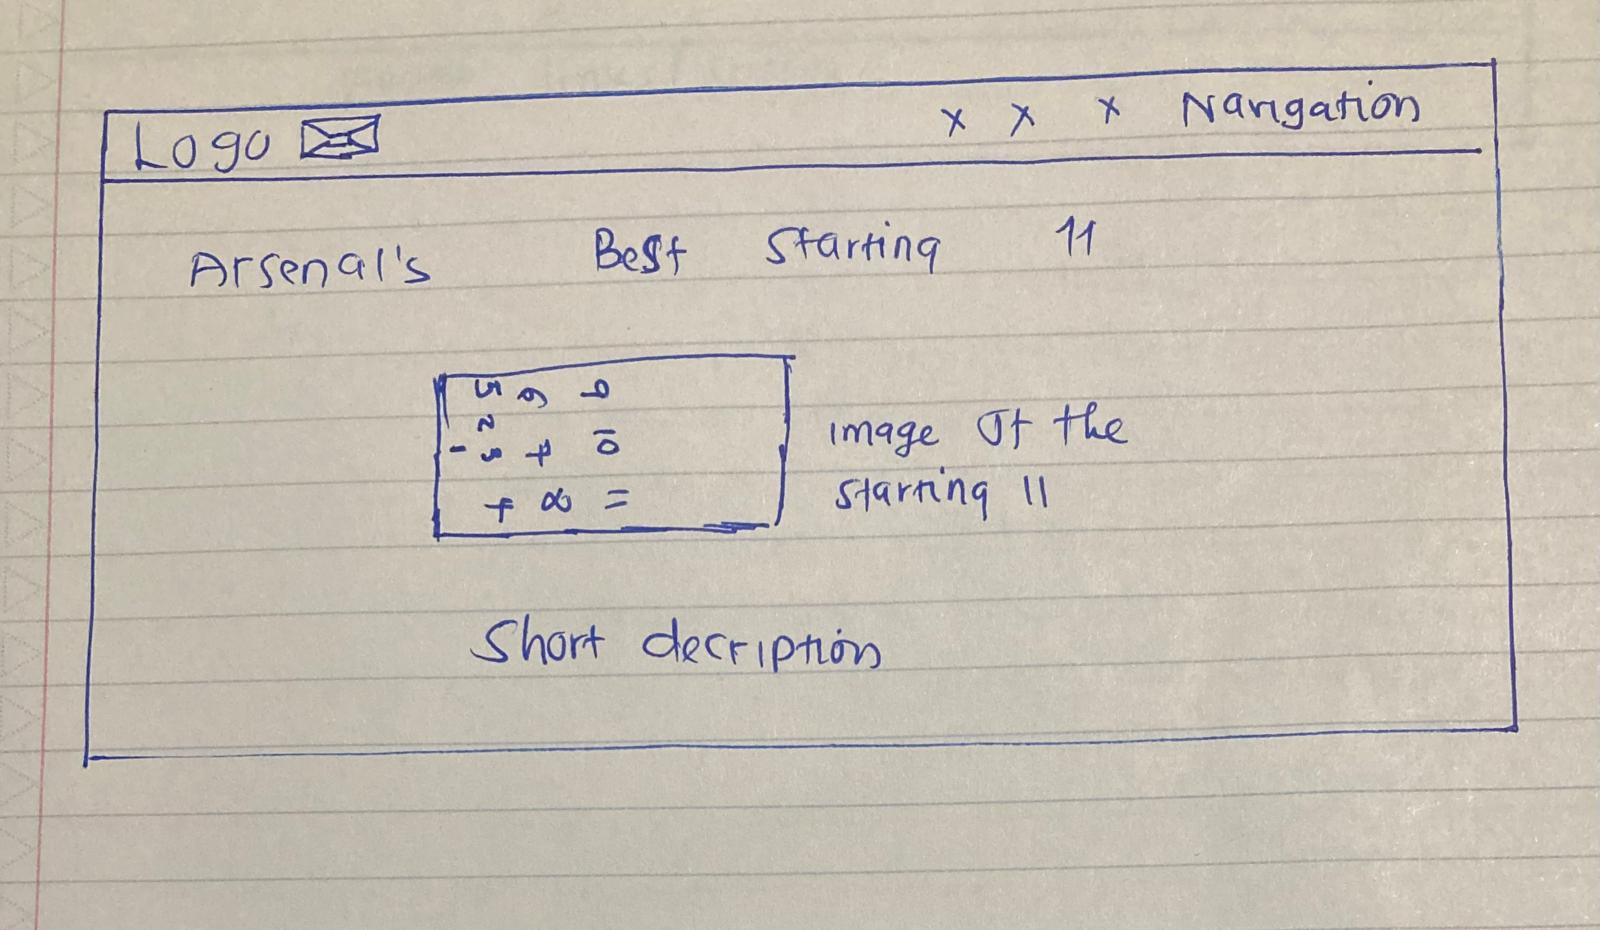 Logo x x x Navigation
Arsenal's Best Starting 11
5 6 9
2
1 3 7 10
4 8 11
image of the
starting 11
Short decription